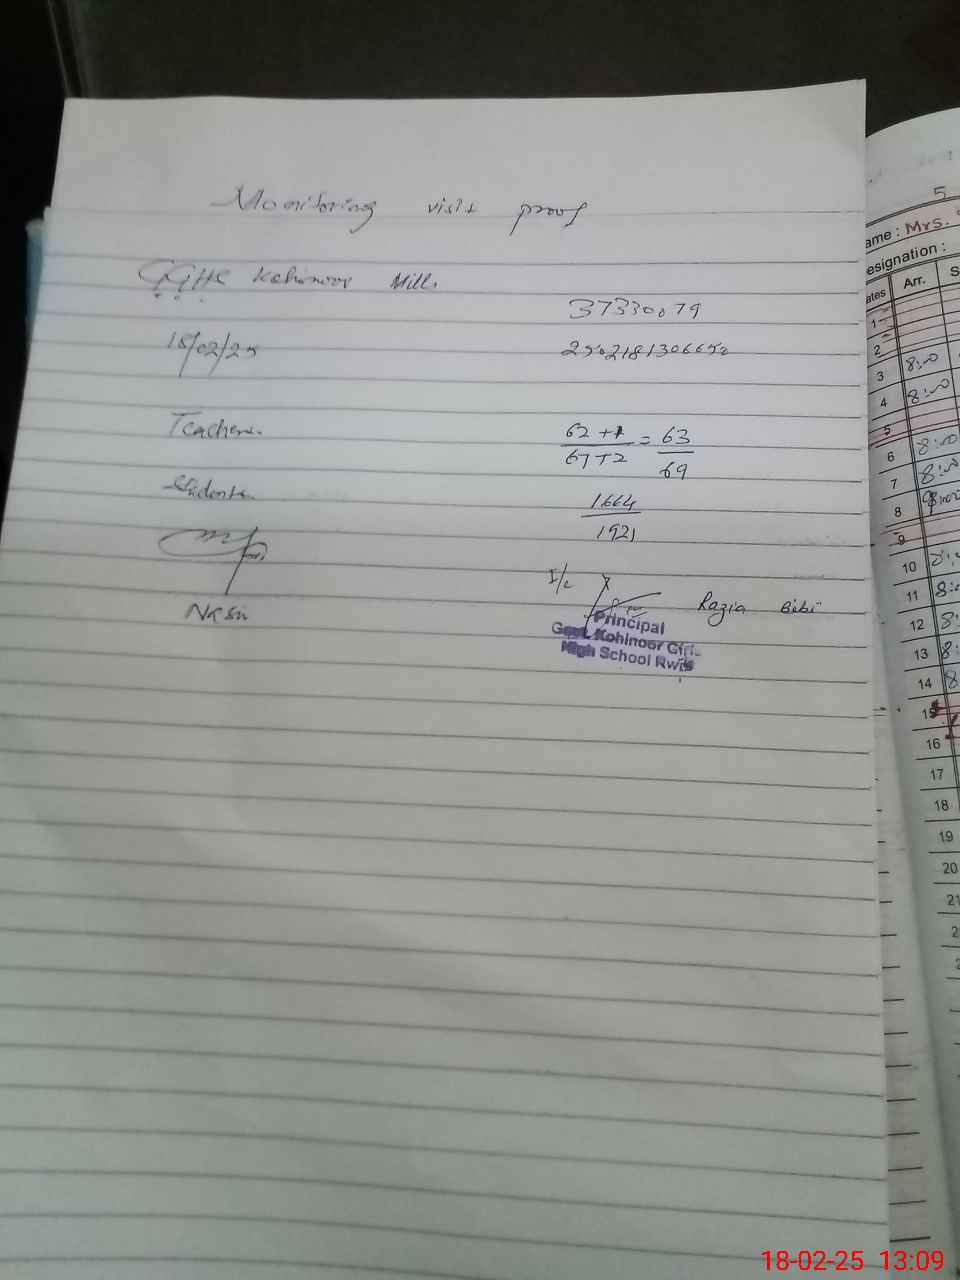 Monitoring visit proof
GGHS Kohinoor Mills
37330079
18/02/25
250218130665
Teachers
62 + 1 = 63
67 + 2 69
Students
1664
1921
I/c
Razia Bibi
Principal
Govt. Kohinoor Girls
High School Rwp
5
ame : Mrs.
esignation :
ates Arr. S
1
2
3 8:00
4 8:00
5
6 8:00
7 8:00
8
9
10
11 8:
12 8:
13 8:
14 8
15
16
17
18
19
20
21
2
2
18-02-25 13:09